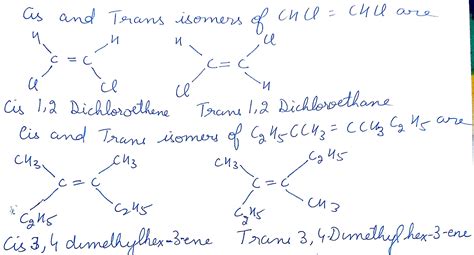 Cis and Trans isomers of CHCl = CHCl are
H H H Cl
C = C C = C
Cl Cl Cl H
Cis 1,2 Dichloroethene Trans 1,2 Dichloroethane
Cis and Trans isomers of C2H5CCH3 = CCH3C2H5 are
CH3 CH3 CH3 C2H5
C = C C = C
C2H5 C2H5 C2H5 CH3
Cis 3,4 dimethylhex-3-ene Trans 3,4-Dimethylhex-3-ene